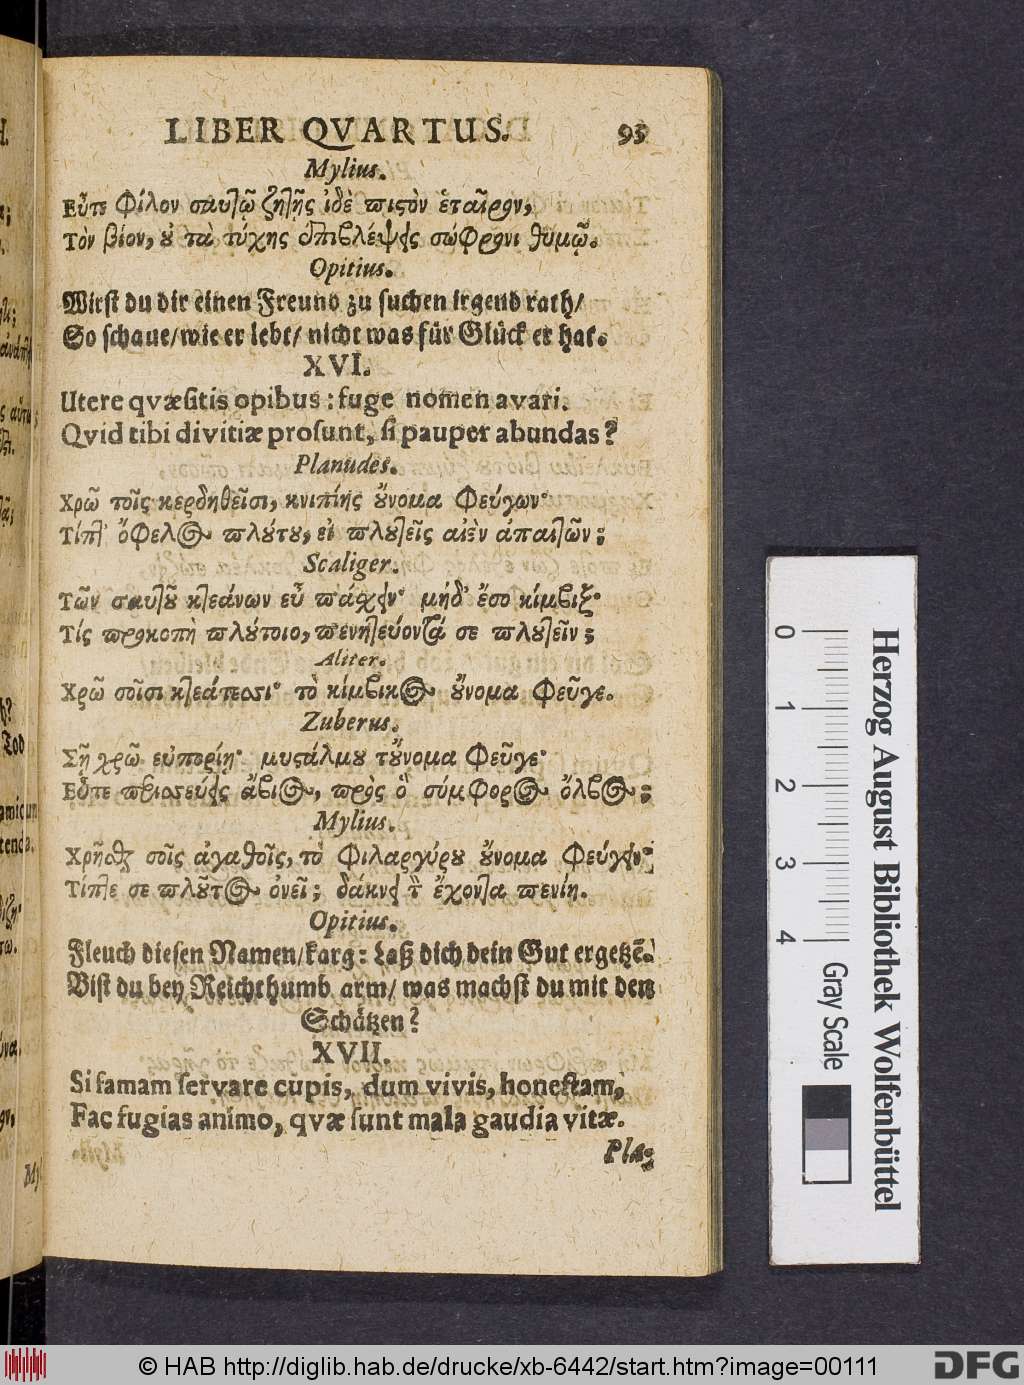 LIBER QVARTUS. 95
Mylius.
Εὖτε φίλον σαυτῷ ζητῇς ἰδὲ πιστὸν ἑταῖρον,
Τὸν βίον, ȣ τὰ τύχης ἐπιβλέψεις σώφρονι θυμῷ.
Opitius.
Wirst du dir einen Freund zu suchen irgend rath/
So schaue/wie er lebt/ nicht was für Glück er hat.
XVI.
Utere qvæsitis opibus: fuge nomen avari.
Qvid tibi divitiæ prosunt, si pauper abundas?
Planudes.
Χρῶ τοῖς κερδηθεῖσι, κνιπίης ȣ̓́νομα φεύγων·
Τίπτ' ὄφελος πλȣ́τȣ, εἰ πλȣτεῖς αἰὲν ἀπαιτῶν;
Scaliger.
Τῶν σαυτȣ͂ κτεάνων εὖ πάσχειν· μήδ' ἔσο κίμβιξ·
Τίς προκοπὴ πλȣ́τοιο, πενητεύοντά σε πλȣτεῖν;
Aliter.
Χρῶ σοῖσι κτεάτεσσι· τὸ κίμβικος ȣ̓́νομα φεῦγε.
Zuberus.
Σῇ χρῶ εὐπορίῃ· μυστάλμȣ τȣ̓́νομα φεῦγε·
Εὖτε πενιστεύεις ἄβιος, πρὸς ὃ σύμφορος ὄλβος;
Mylius.
Χρῆσθαι σοῖς ἀγαθοῖς, τὸ φιλαργύρȣ ȣ̓́νομα φεύγειν·
Τίπτε σε πλȣ͂τος ὀνεῖ; δάκνει τ ἔχοντα πενίη.
Opitius.
Fleuch diesen Namen/karg: Laß dich dein Gut ergetzẽ.
Bist du bey Reichthumb arm/ was machst du mit den
Schätzen?
XVII.
Si famam servare cupis, dum vivis, honestam,
Fac fugias animo, qvæ sunt mala gaudia vitæ.
Pla-
Herzog August Bibliothek Wolfenbüttel
0 1 2 3 4
Gray Scale
© HAB http://diglib.hab.de/drucke/xb-6442/start.htm?image=00111
DFG